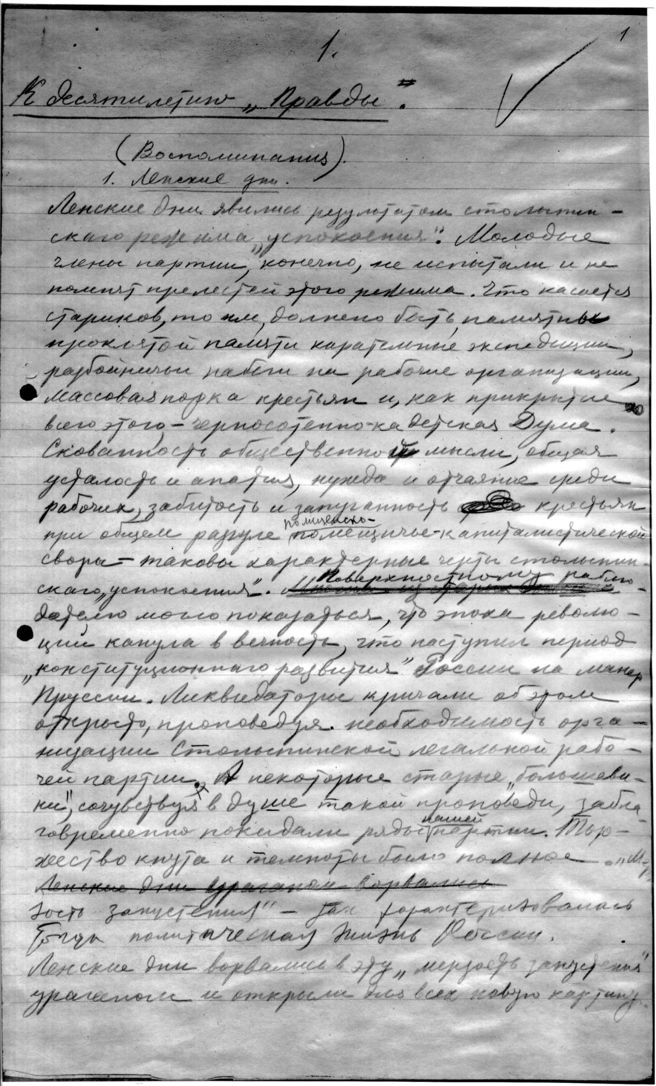 1.
1
К десятилетию „Правды".
(Воспоминания).
1. Ленские дни.
Ленские дни явились результатом столыпин-
скаго режима „успокоения". Молодые
члены партии, конечно, не испытали и не
помнят прелестей этого режима. Что касается
стариков, то им, должно быть, памятны
проклятой памяти карательные экспедиции,
разбойничьи набеги на рабочие организации,
массовая порка крестьян и, как прикрытие
всего этого, – черносотенно-кадетская Дума.
Скованность общественной мысли, общая
усталость и апатия, нужда и отчаяние среди
рабочих, забитость и запуганность крестьян
при общем разгуле полицейско-
помещичье-капиталистической
своры – таковы характерные черты столыпин-
скаго „успокоения".
Поверхностному наблю-
дателю могло показаться, что эпоха револю-
ций канула в вечность, что наступил период
„конституционнаго развития" России на манер
Пруссии. Ликвидаторы кричали об этом
открыто, проповедуя необходимость орга-
низации столыпинской легальной рабо-
чей партии. А некоторые старые „большеви-
ки", сочувствуя в душе такой проповеди, забла-
говременно покидали ряды нашей партии. Тор-
жество кнута и темноты было полное. „Мер-
Ленские дни ураганом ворвались
зость запустения" – так характеризовалась
тогда политическая жизнь России.
Ленские дни ворвались в эту „мерзость запустения"
ураганом и открыли для всех новую картину.